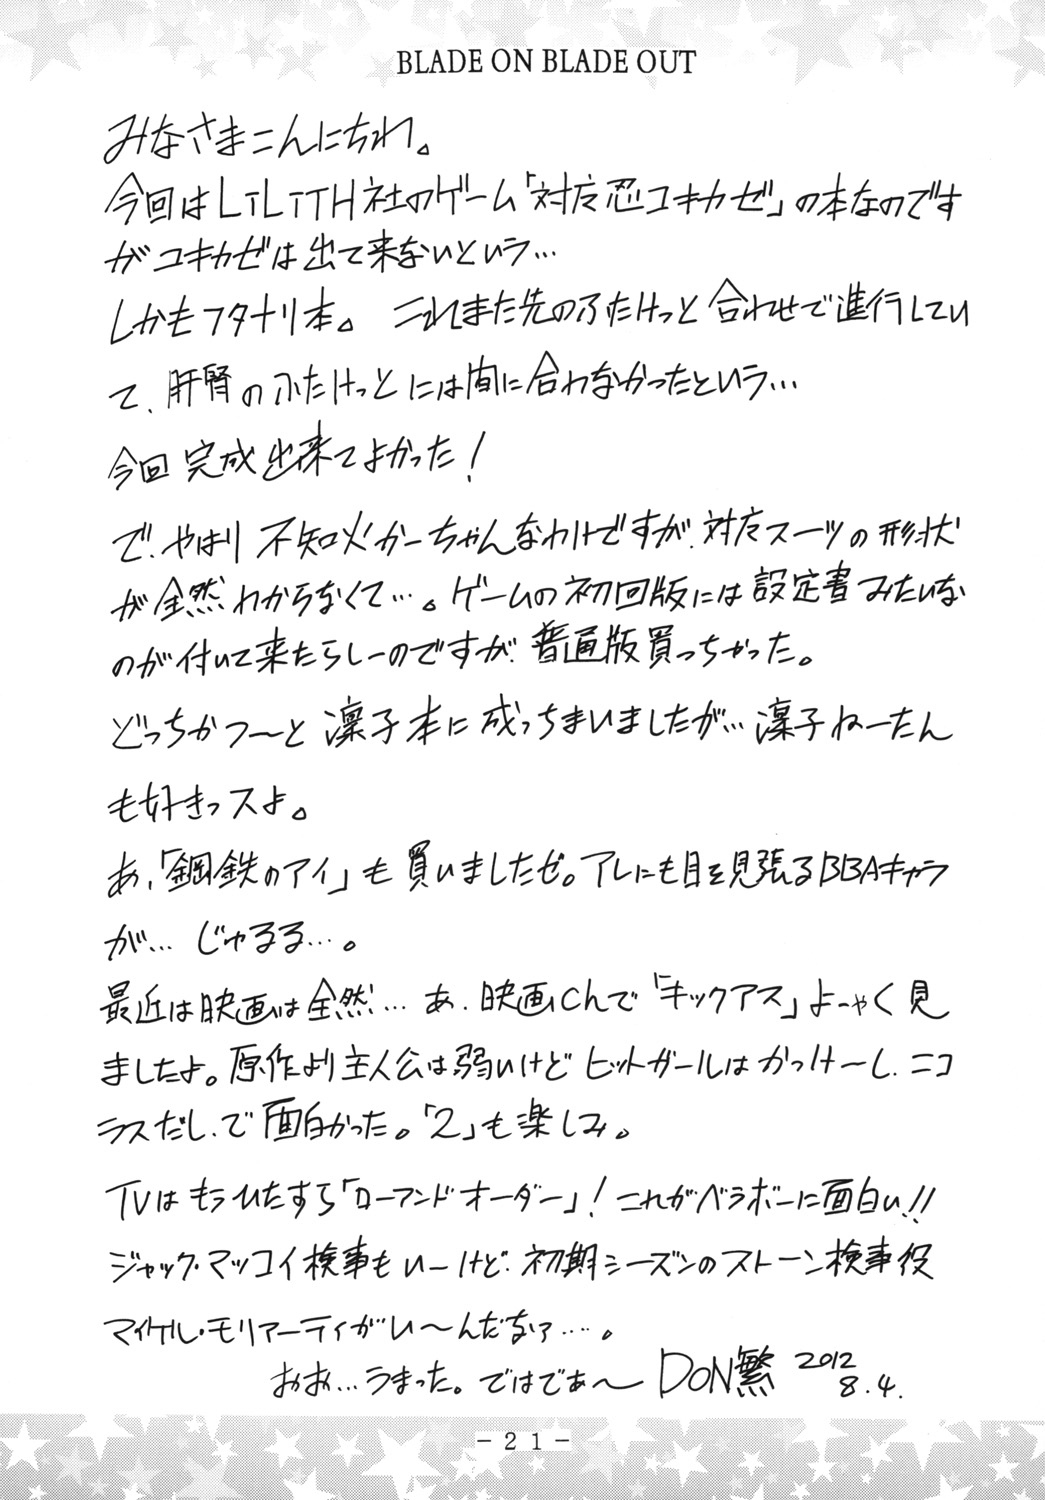 BLADE ON BLADE OUT
みなさまこんにちわ。
今回はLiLiTH社のゲーム「対魔忍ユキカゼ」の本なのです
がユキカゼは出て来ないという…
しかもフタナリ本。 これまた先のふたけっと合わせで進行してい
て、肝腎のふたけっとには間に合わなかったという…
今回完成出来てよかった!
で、やはり不知火かーちゃんなわけですが、対魔スーツの形状
が全然わからなくて…。ゲームの初回版には設定書みたいな
のが付いて来たらしーのですが、普通版買っちゃった。
どっちかつ〜と凛子本に成っちまいましたが…凛子ねーたん
も好きっスよ。
あ、「鋼鉄のアイ」も買いましたぜ。アレにも目を見張るBBAキャラ
が… じゅるる…。
最近は映画は全然… あ、映画Chで「キックアス」よーやく見
ましたよ。原作より主人公は弱いけどヒットガールはかっけーし、ニコ
ラスだし、で面白かった。「2」も楽しみ。
TVはもうひたすら「ローアンドオーダー」! これがベラボーに面白い!!
ジャック・マッコイ検事もいーけど、初期シーズンのストーン検事役
マイケル・モリアーティがい〜んだなァ…。
おお…うまった。ではでぁ〜 DON繁 2012
8.4.
-21-